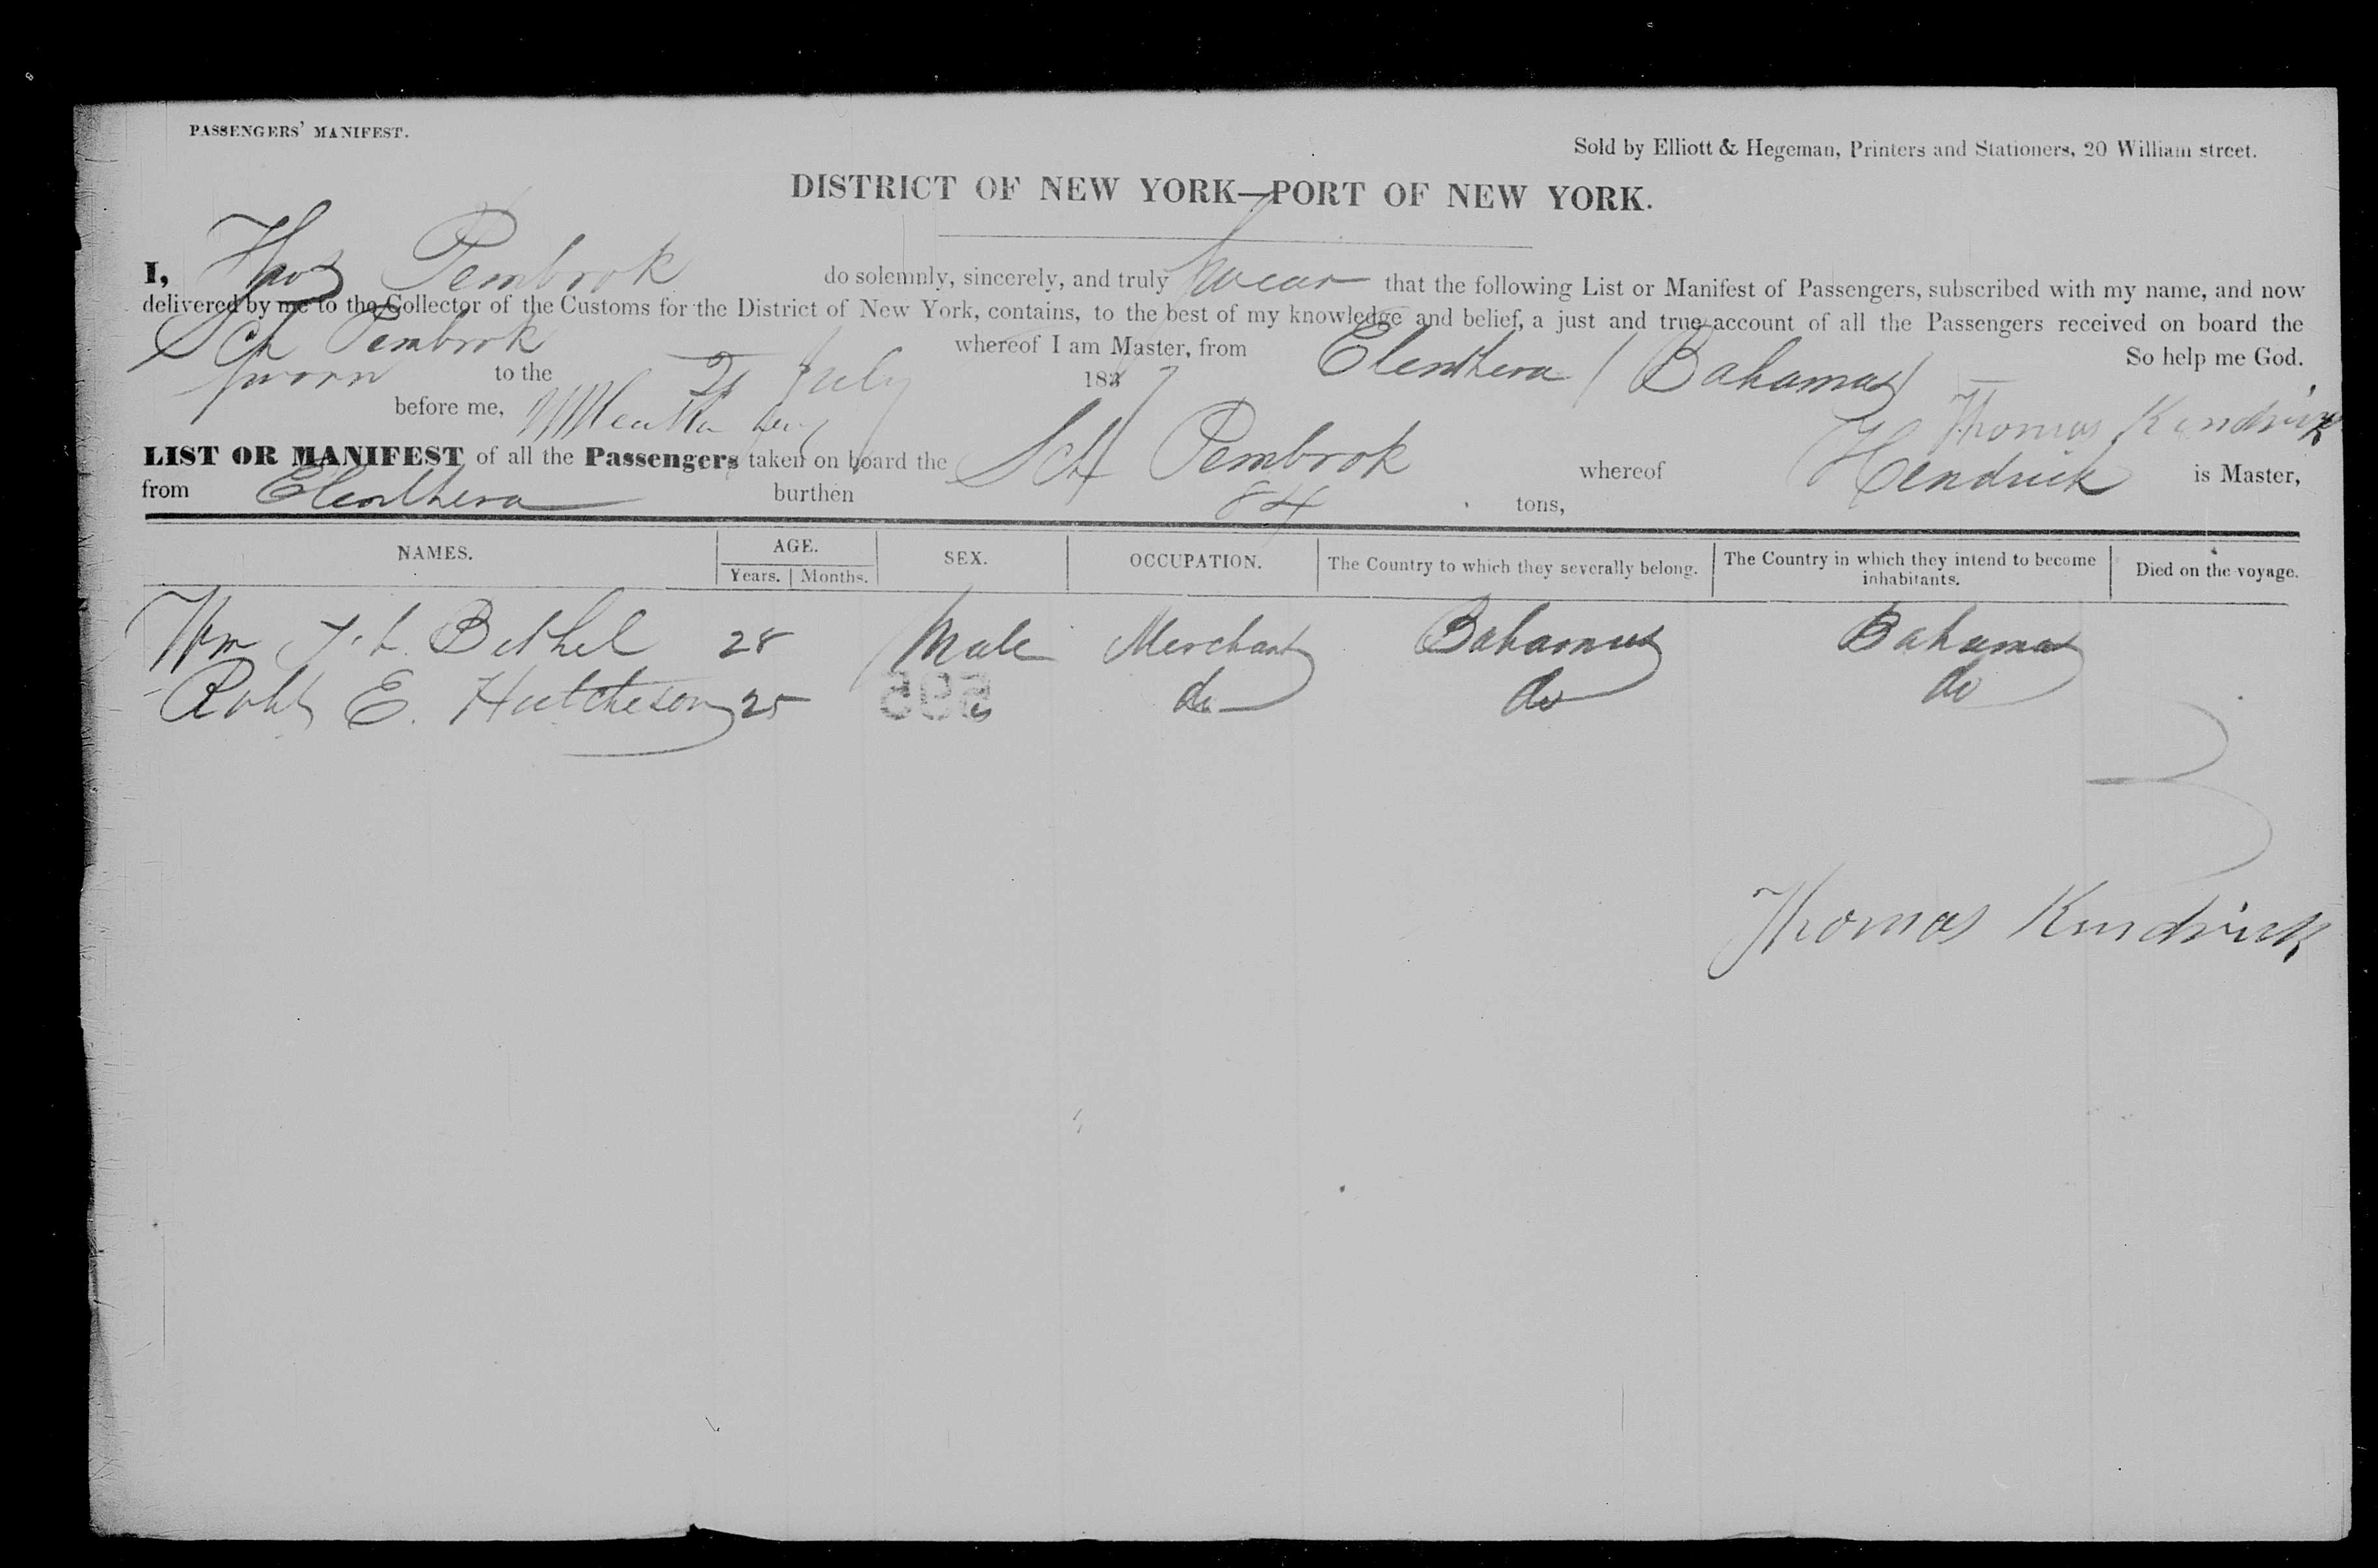 PASSENGERS' MANIFEST.
Sold by Elliott & Hegeman, Printers and Stationers, 20 William street.
DISTRICT OF NEW YORK—PORT OF NEW YORK.
I, Thos Pembrok do solemnly, sincerely, and truly swear that the following List or Manifest of Passengers, subscribed with my name, and now
delivered by me to the Collector of the Customs for the District of New York, contains, to the best of my knowledge and belief, a just and true account of all the Passengers received on board the
Sch Pembrok whereof I am Master, from Eleuthera / Bahamas / So help me God.
Sworn to the July 1837
before me, Thomas Kendrick
LIST OR MANIFEST of all the Passengers taken on board the Sch Pembrok whereof Hendrick is Master,
from Eleuthera burthen 84 tons,
NAMES. AGE. Years. Months. SEX. OCCUPATION. The Country to which they severally belong. The Country in which they intend to become inhabitants. Died on the voyage.
Wm Bethel 28 Male Merchant Bahamas Bahamas
Robt E. Hutcheson 25 do do do
Thomas Kendrick